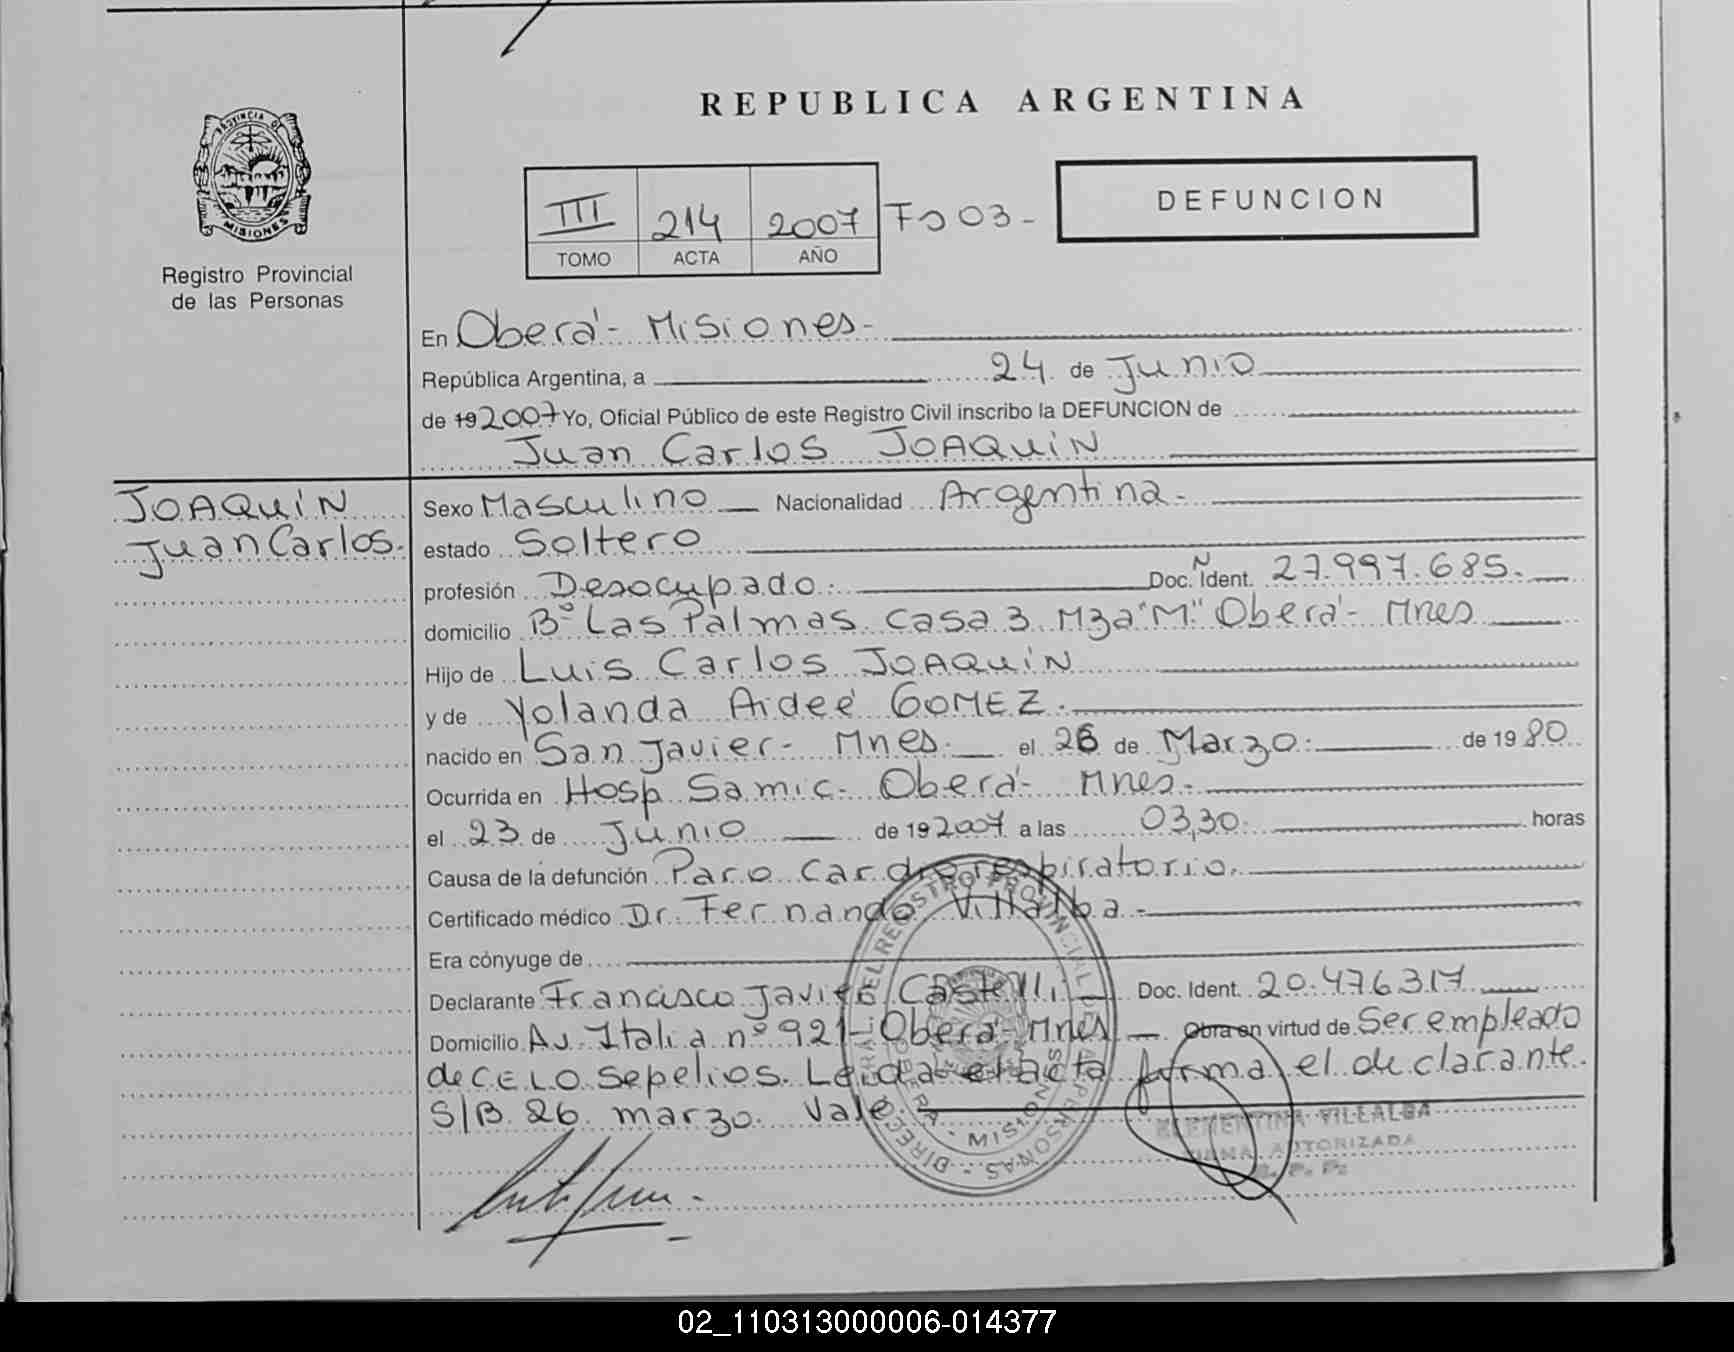 REPUBLICA ARGENTINA
PROVINCIA DE
MISIONES
Registro Provincial
de las Personas
III 214 2007 Fo 03-
TOMO ACTA AÑO
DEFUNCION
En Oberá- Misiones-
República Argentina, a 24 de Junio
de 19 2007 Yo, Oficial Público de este Registro Civil inscribo la DEFUNCION de
Juan Carlos JOAQUíN
JOAQUíN
Juan Carlos.
Sexo Masculino Nacionalidad Argentina-
estado Soltero
profesión Desocupado. Doc. N Ident. 27.997.685.
domicilio Bº Las Palmas casa 3 Mza "M" Oberá- Mnes
Hijo de Luis Carlos JOAQUíN
y de Yolanda Aideé GOMEZ.
nacido en San Javier- Mnes. el 26 de Marzo. de 19 80
Ocurrida en Hosp Samic- Oberá- Mnes.
el 23 de Junio de 19 2007 a las 03,30. horas
Causa de la defunción Paro cardiorespiratorio.
Certificado médico Dr. Fernando Villalba-
Era cónyuge de
Declarante Francisco Javier Castelli Doc. Ident. 20.476.317
Domicilio Av. Italia nº 921- Oberá- Mnes Obra en virtud de Ser empleado
de CELO Sepelios. Leida el acta firma el declarante.
S/B. 26. marzo. Vale.
CLEMENTINA VILLALBA
FIRMA AUTORIZADA
R. P. P.
02_110313000006-014377